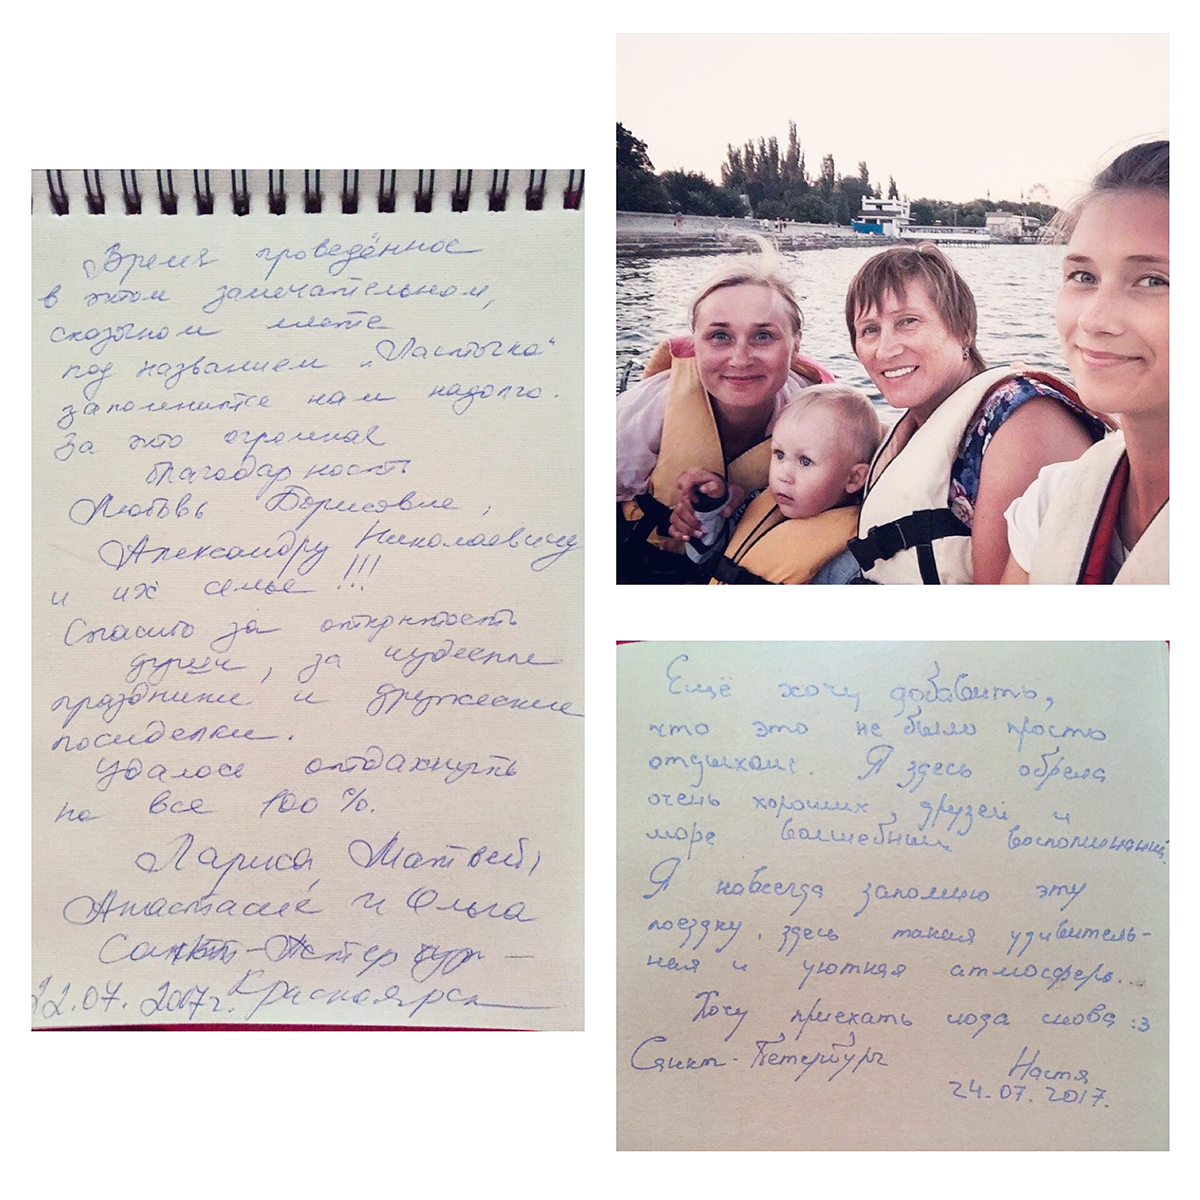 Время проведённое
в этом замечательном,
сказочном месте
под названием „Ласточка“
запомнится нам надолго.
За это огромная
благодарность
Любовь Борисовне,
Александру Николаевичу
и их семье!!!
Спасибо за открытость
души, за чудесные
праздники и дружеские
посиделки.
Удалось отдахнуть
на все 100%.
Лариса, Матвей,
Анастасия и Ольга
Санкт-Петербург –
22.07.2017г. Красноярск
Ещё хочу добавить,
что это не было просто
отдыхом. Я здесь обрела
очень хороших друзей и
море волшебных воспоминаний.
Я навсегда запомню эту
поездку, здесь такая удивитель-
ная и уютная атмосфера...
Хочу приехать сюда снова :3
Санкт-Петербург
Настя
24.07.2017.